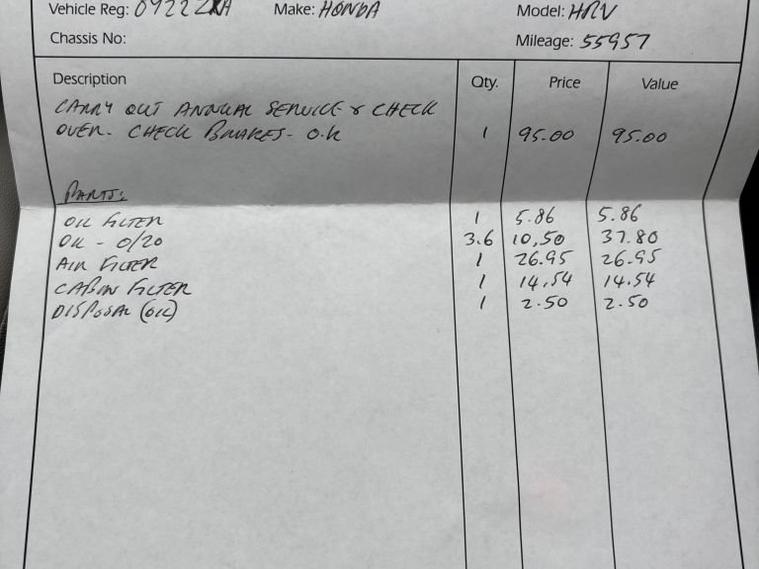 Vehicle Reg: Make: HONDA Model: HRV
Chassis No: Mileage: 55957
Description Qty. Price Value
CARRY OUT ANNUAL SERVICE & CHECK
OVER. CHECK BRAKES - O.K 1 95.00 95.00
PARTS:
OIL FILTER 1 5.86 5.86
OIL - 0/20 3.6 10.50 37.80
AIR FILTER 1 26.95 26.95
CABIN FILTER 1 14.54 14.54
DISPOSAL (OIL) 1 2.50 2.50